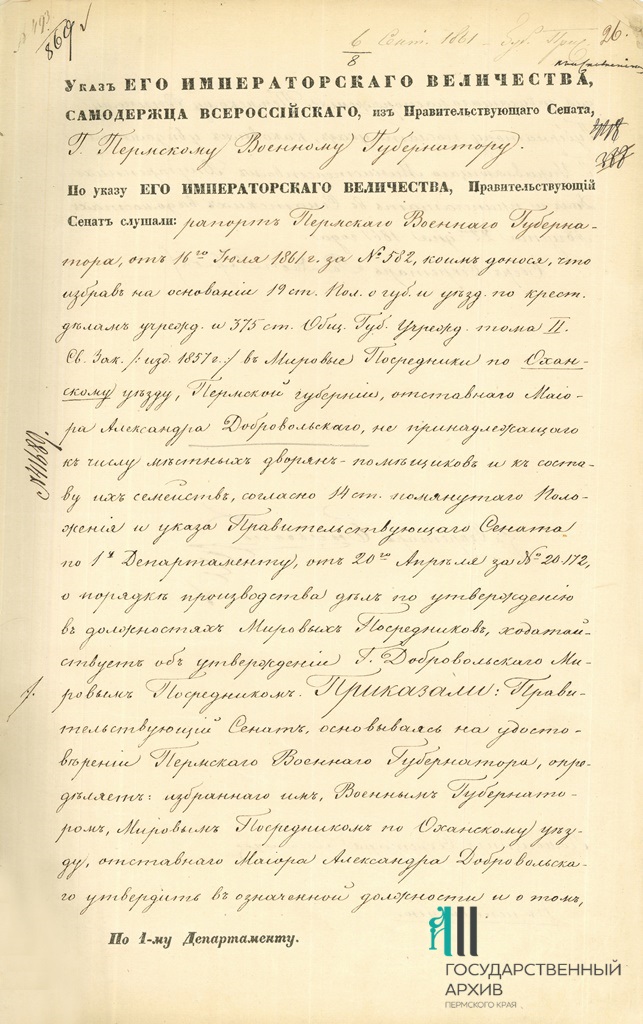 869
6 Сент. 1861
8
26.
Указъ ЕГО ИМПЕРАТОРСКАГО ВЕЛИЧЕСТВА,
САМОДЕРЖЦА ВСЕРОССІЙСКАГО, изъ Правительствующаго Сената,
Г. Пермскому Военному Губернатору.
По указу ЕГО ИМПЕРАТОРСКАГО ВЕЛИЧЕСТВА, Правительствующій
Сенатъ слушали: рапортъ Пермскаго Военнаго Губерна-
тора, отъ 16го Іюля 1861 г. за № 582, коимъ донося, что
избравъ на основаніи 19 ст. Пол. о губ. и уѣзд. по крест.
дѣламъ учрежд. и 375 ст. Общ. Губ. Учрежд. тома II.
Св. Зак. /: изд. 1857 г. :/ въ Мировые Посредники по Охан-
скому уѣзду, Пермской губерніи, отставнаго Маіо-
ра Александра Добровольскаго, не принадлежащаго
къ числу мѣстныхъ дворянъ-помѣщиковъ и къ соста-
ву ихъ семействъ, согласно 14 ст. помянутаго Поло-
женія и указа Правительствующаго Сената
по 1му Департаменту, отъ 20го Апрѣля за № 20.172,
о порядкѣ производства дѣлъ по утвержденію
въ должностяхъ Мировыхъ Посредниковъ, ходатай-
ствуетъ объ утвержденіи Г. Добровольскаго Ми-
ровымъ Посредникомъ. Приказали: Прави-
тельствующій Сенатъ, основываясь на удосто-
вѣреніи Пермскаго Военнаго Губернатора, опре-
дѣляетъ: избраннаго имъ, Военнымъ Губернато-
ромъ, Мировымъ Посредникомъ по Оханскому уѣз-
ду, отставнаго Маіора Александра Добровольска-
го утвердить въ означенной должности и о томъ,
По 1-му Департаменту.
ГОСУДАРСТВЕННЫЙ
АРХИВ
ПЕРМСКОГО КРАЯ